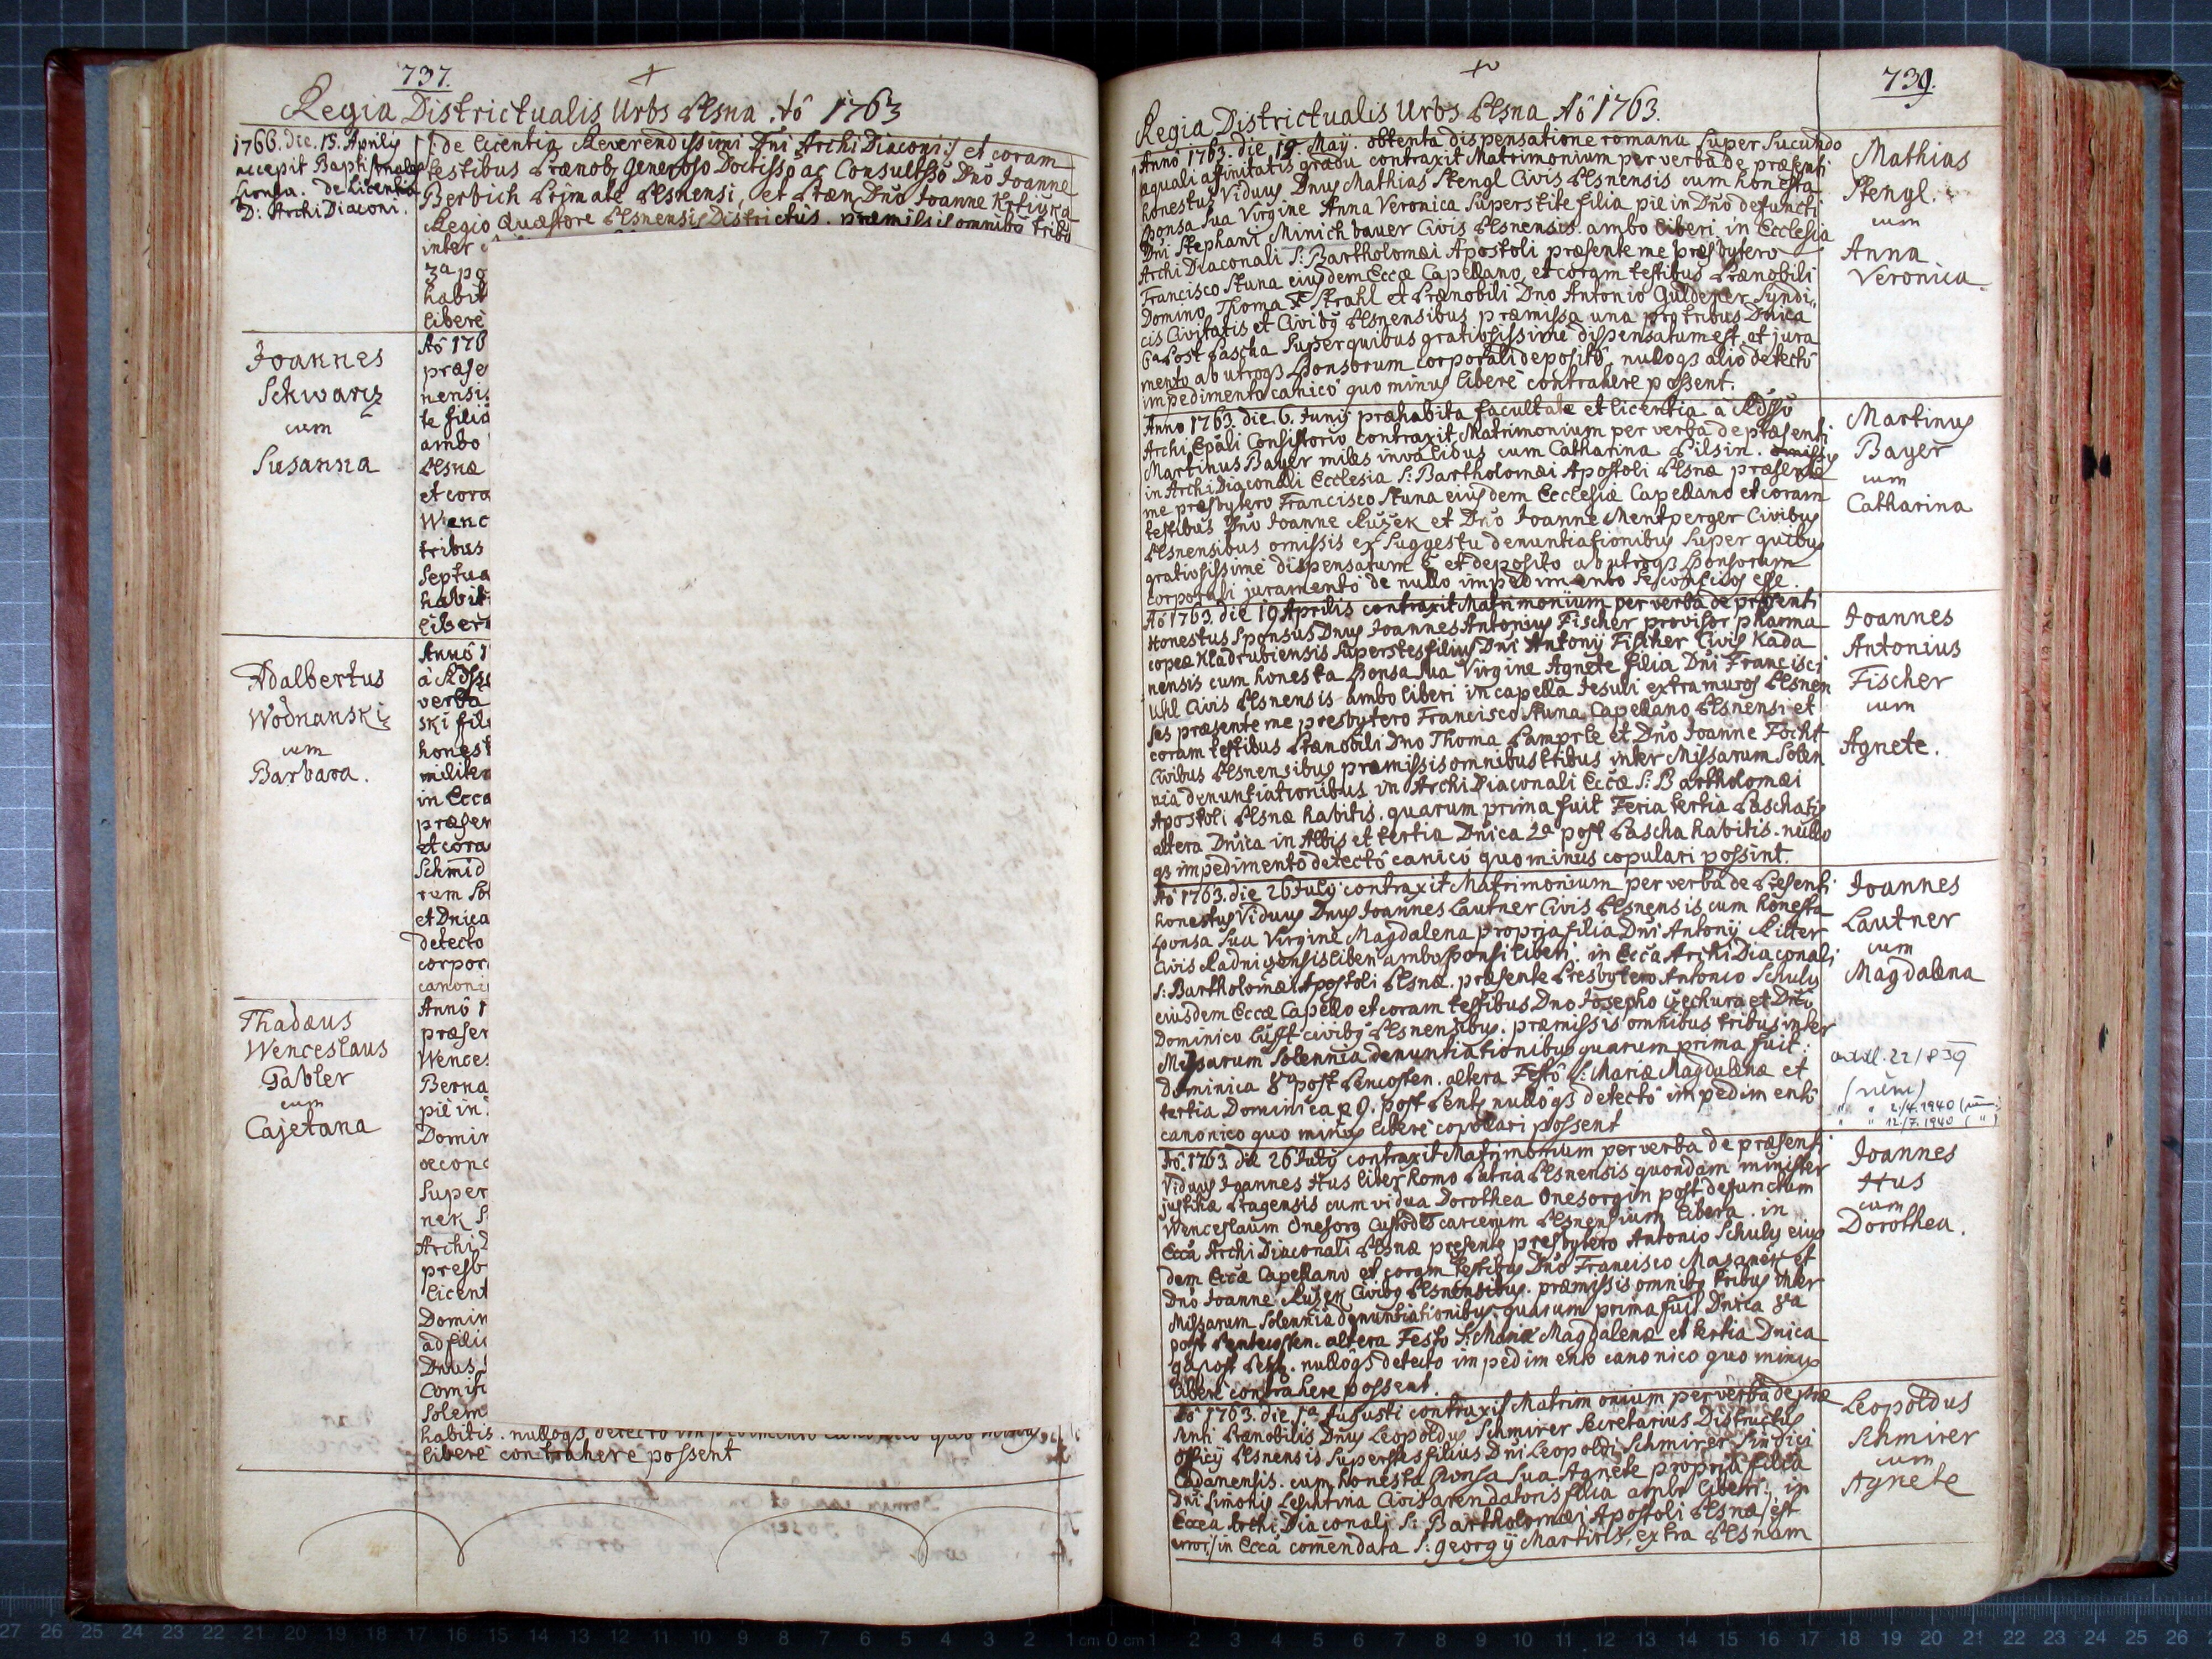 737.
Regia Districtualis Urbs Plsna Aô 1763
1766. die. 15. Aprilis
accepit Baptismales
Licentia. de Licentia
D: ArchiDiaconi.
de licentia Reverendissimi Dni ArchiDiaconi :/ et coram
testibus Prænob. Generoso Doctisso ac Consultsso Dno Joanne
Berbich Primate Plsnensi, et Præn. Dno Joanne
Regio Quæstore Plsnensis Districtus. præmissis omnibq tribq
inter
3a po
habit
libere
Joannes
Schwarz
cum
Susanna
Aô 176
præse
nensis
te filia
ambo
Plsnæ
et cora
Wenc
tribus
Septua
habit
liber
Adalbertus
Wodnanski
cum
Barbara.
Annô 1
à Rdss
verba
ski fil
honest
militar
in Ecca
præsen
et cora
Schmid
rum Sol
et Dnica
detecto
corpor
canoni
Thadæus
Wenceslaus
Tabler
cum
Cajetana
Annô 1
præsen
Wences
Berna
pie in
Domin
œcono
Super
nek S
Archi D
presb
licent
Domin
ad filia
Dnus
Comiti
Solem
habitis. nullôqz detecto impedimento canonico quo minus
libere contrahere possent
739.
Regia Districtualis Urbs Plsna Aô 1763.
Anno 1763. die 19. May. obtenta dispensatione romana super Sucundo
æquali affinitatis gradu contraxit Matrimonium per verba de præsenti
honestus Viduus Dnus Mathias Stengl Civis Plsnensis cum honesta
sponsa sua Virgine Anna Veronica superstite filia pie in Dno defuncti
Dni Stephani Minichbauer Civis Plsnensis. ambo liberi. in Ecclesia
ArchiDiaconali S: Bartholomæi Apostoli præsente me præsbytero
Francisco Skuna eiusdem Eccæ Capellano, et coram testibus Prænobili
Domino Thoma Strahl et Prænobili Dno Antonio Guldener Syndi,,
cis Civitatis et Civibq Plsnensibus præmissa una pro tribus Dnica
6a Post Pascha super quibus gratiosissime dispensatum est. et jura
mento ab utroqz sponsorum corporali deposito, nulloqz alio detectô
impedimento canicô quo minus liberè contrahere possent.
Mathias
Stengl.
cum
Anna
Veronica
Anno 1763. die. 6. Junij præhabita facultate et licentia à Rdssô
Archi Epâli Consistorio contraxit Matrimonium per verba de præsenti
Martinus Bayer miles invalibus cum Catharina Pilsin.
in ArchiDiaconali Ecclesia S: Bartholomæi Apostoli Plsnæ præsente
me præsbytero Francisco Skuna eiusdem Ecclesiæ Capellano et coram
testibus Dno Joanne Ružek et Dno Joanne Mentperger Civibus
Plsnensibus omissis ex suggestu denuntiationibus super quibus
gratiosissime dispensatum ē et deposito ab utroqz sponsorum
corporali juramentô de nullo impedimento se conscios esse.
Martinus
Bayer
cum
Catharina
Aô 1763. die 19 Aprilis contraxit Matrimonium per verba de præsenti
Honestus Sponsus Dnus Joannes Antonius Fischer provisor pharma
copeæ Kladrubiensis superstes filius Dni Antonij Fischer Civis Kada
nensis cum honesta sponsa sua Virgine Agnete filia Dni Francisci
Uhl Civis Plsnensis ambo liberi in capella Jesuli extra muros Plsnen
ses præsente me presbytero Francisco Skuna Capellano Plsnensi et
coram testibus Prænobili Dno Thoma Lamprle et Dno Joanne Focht
civibus Plsnensibus præmissis omnibus tribus inter Missarum Solen
nia denuntiationibus in ArchiDiaconali Eccæ S: Bartholomæi
Apostoli Plsnæ habitis. quarum prima fuit Feria tertia Paschatis
altera Dnica in Albis et tertia Dnica 2a post Pascha habitis. nullo
qz impedimentô detectô canicô quo minus copulari possint.
Joannes
Antonius
Fischer
cum
Agnete.
Aô 1763. die 26 July contraxit Matrimonium per verba de Præsenti
honestus Viduus Dnus Joannes Lautner Civis Plsnensis cum honesta
sponsa sua Virgine Magdalena propria filia Dni Antonij Ritter
Civis Radnicensis liberi ambo sponsi liberi. in Ecca ArchiDiaconali
S: Bartholomæi Apostoli Plsnæ. præsente Presbytero Antonio Schuly
eiusdem Eccæ Capello et coram testibus Dno Josepho Czechura et Dno
Dominico Lufft civibq Plsnensibus. præmissis omnibus tribus inter
Missarum Solennia denuntiationibus quarum prima fuit
Dominica 8a post Pencosten. altera Festô S: Mariæ Magdalenæ et
tertia Dominica 9. post Pent. nullôqz detectô impedimentô
canonico quo minus liberè copollari possent
Joannes
Lautner
cum
Magdalena
22/8 39
" " 2/4. 1940
" " 12/7. 1940 ( " )
Aô. 1763. die 26 July contraxit Matrimonium per verba de præsenti
Viduus Joannes Hus liber homo Patria Plsnensis quondam minister
justitiæ Pragensis cum vidua Dorothea Onesorgin post defunctum
Wenceslaum Onesorg Custodis carcerum Plsnensium libera. in
Ecca ArchiDiaconali Plsnæ presente presbytero Antonio Schuly eius
dem Eccæ Capellano et coram testibus Dno Francisco Masanek et
Dno Joanne Ružek Civibq Plsnensibus. præmissis omnibq tribus inter
Missarum Solennia denuntiationibus. quarum prima fuit Dnica 8a
post Pentecosten. altera Festo S: Mariæ Magdalenæ et tertia Dnica
9a post Pent. nullôqz detecto impedimento canonico quo minus
liberè contrahere possent.
Joannes
Hus
cum
Dorothea.
Aô 1763. die 1a Augusti contraxit Matrimonium per verba de præ
senti Prænobilis Dnus Leopoldus Schmirer Secretarius Districtus
Officij Plsnensis superstes filius Dni Leopoldi Schmirer Sindici
Cadanensis. cum honesta sponsa sua Agnete propria filia
Dni Simonis Leschtina Civis arendatoris filia ambo liberi. in
Eccea Archi Diaconali S: Bartholomæi Apostoli Plsnæ/ est
error:/ in Ecca comendata S: Georgij Martiris, extra Plsnam
Leopoldus
Schmirer
cum
Agnete